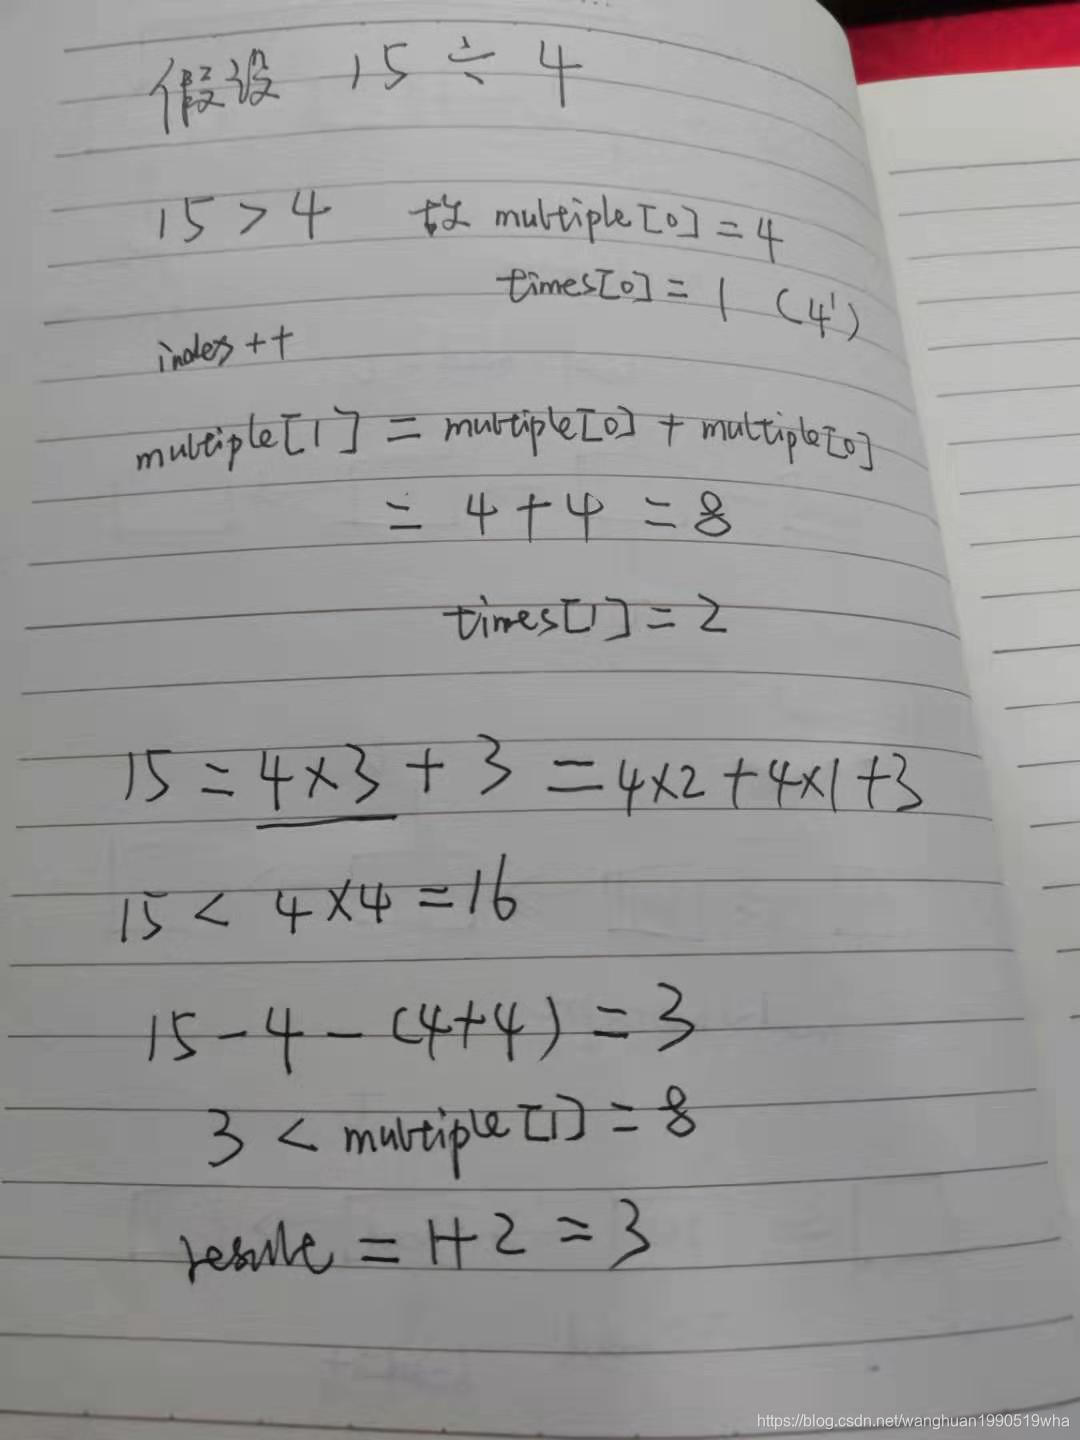 假设 15 ÷ 4
15 > 4 故 multiple[0] = 4
times[0] = 1 (4¹)
index++
multiple[1] = multiple[0] + multiple[0]
= 4 + 4 = 8
times[1] = 2
15 = 4×3 + 3 = 4×2 + 4×1 + 3
15 < 4×4 = 16
15 - 4 - (4+4) = 3
3 < multiple[1] = 8
result = 1+2 = 3
https://blog.csdn.net/wanghuan1990519wha